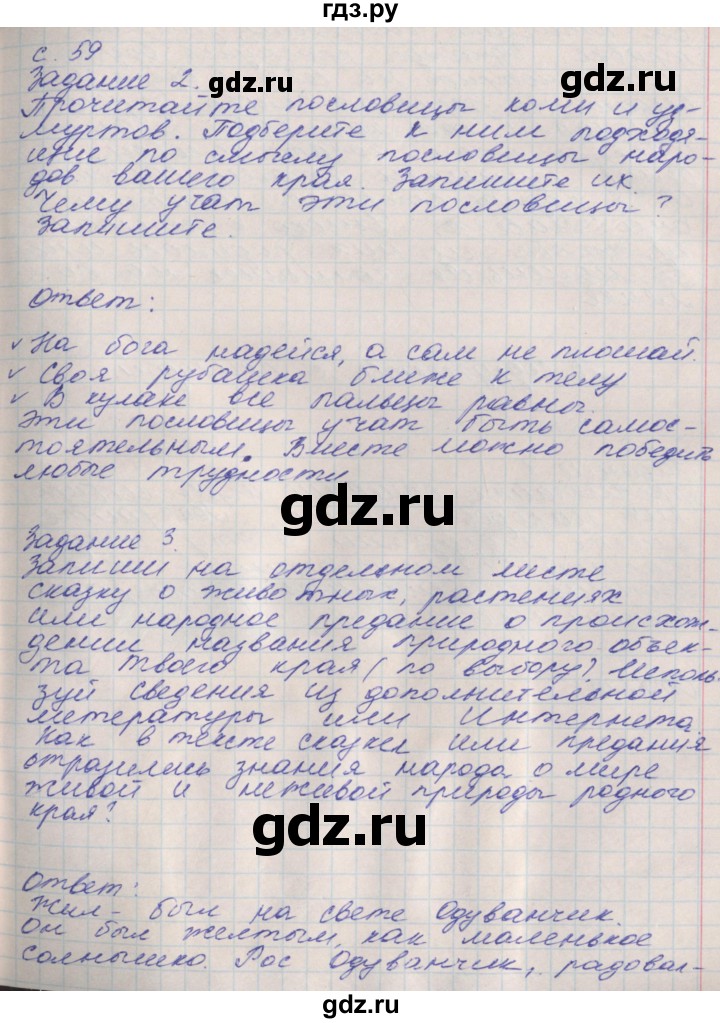 гдз.ру
с. 59
Задание 2.
gdz.ru
Прочитайте пословицы коми и уд-
муртов. Подберите к ним подходя-
щие по смыслу пословицы наро-
дов вашего края. Запишите их.
Чему учат эти пословицы?
Запишите.
Ответ:
✓ На бога надейся, а сам не плошай.
✓ Своя рубашка ближе к телу
✓ В кулаке все пальцы равны.
Эти пословицы учат быть самос-
тоятельным. Вместе можно победить
любые трудности
gdz.ru
Задание 3.
Запиши на отдельном листе
сказку о животных, растениях
или народное предание о происхож-
дении названия природного объек-
та твоего края (по выбору). Исполь-
зуй сведения из дополнительной
литературы или Интернета.
Как в тексте сказки или предания
отразились знания народа о мире
живой и неживой природы родного
края?
gdz.ru
Ответ:
Жил-был на свете Одуванчик.
Он был желтым, как маленькое
солнышко. Рос Одуванчик, радовал-
gdz.ru
gdz.ru